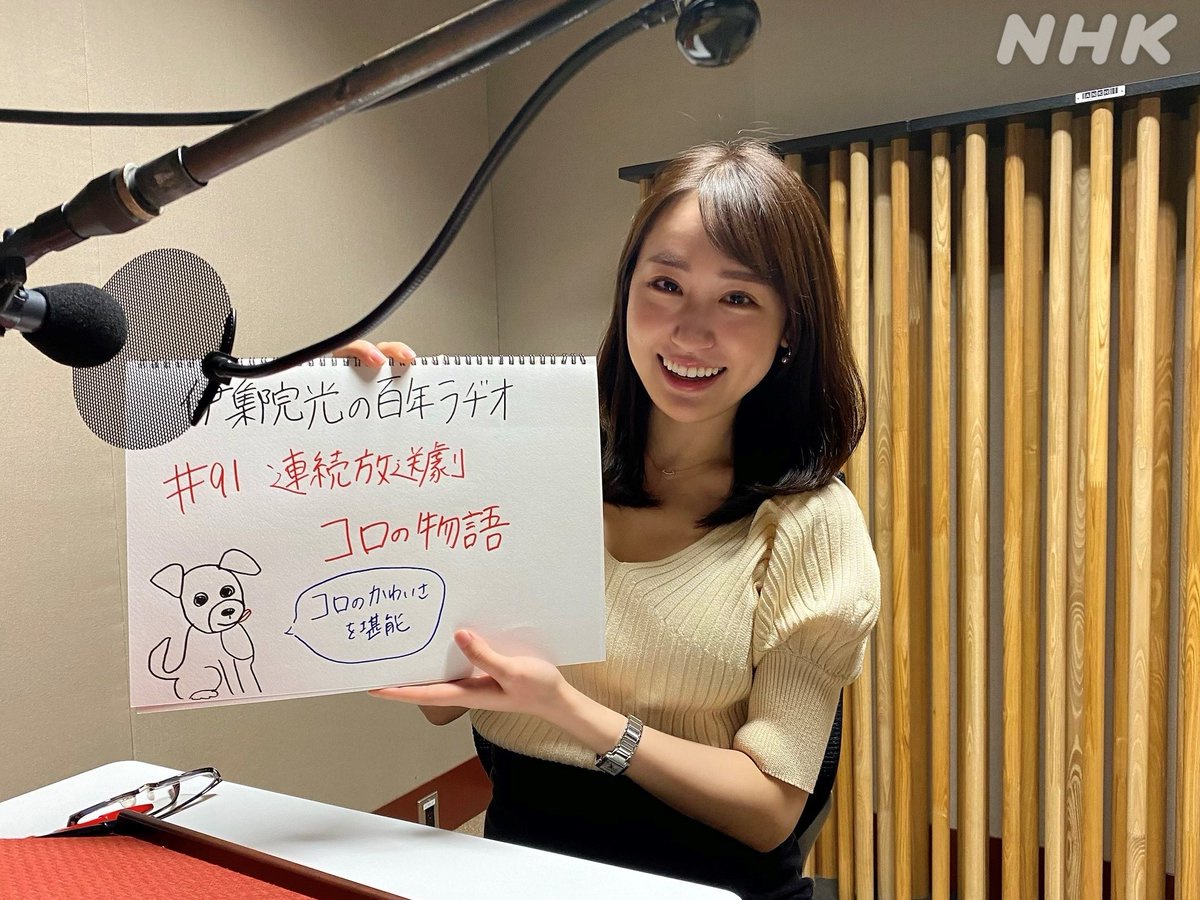 NHK
伊集院光の百年ラヂオ
#91 連続放送劇
コロの物語
コロのかわいさ
を堪能